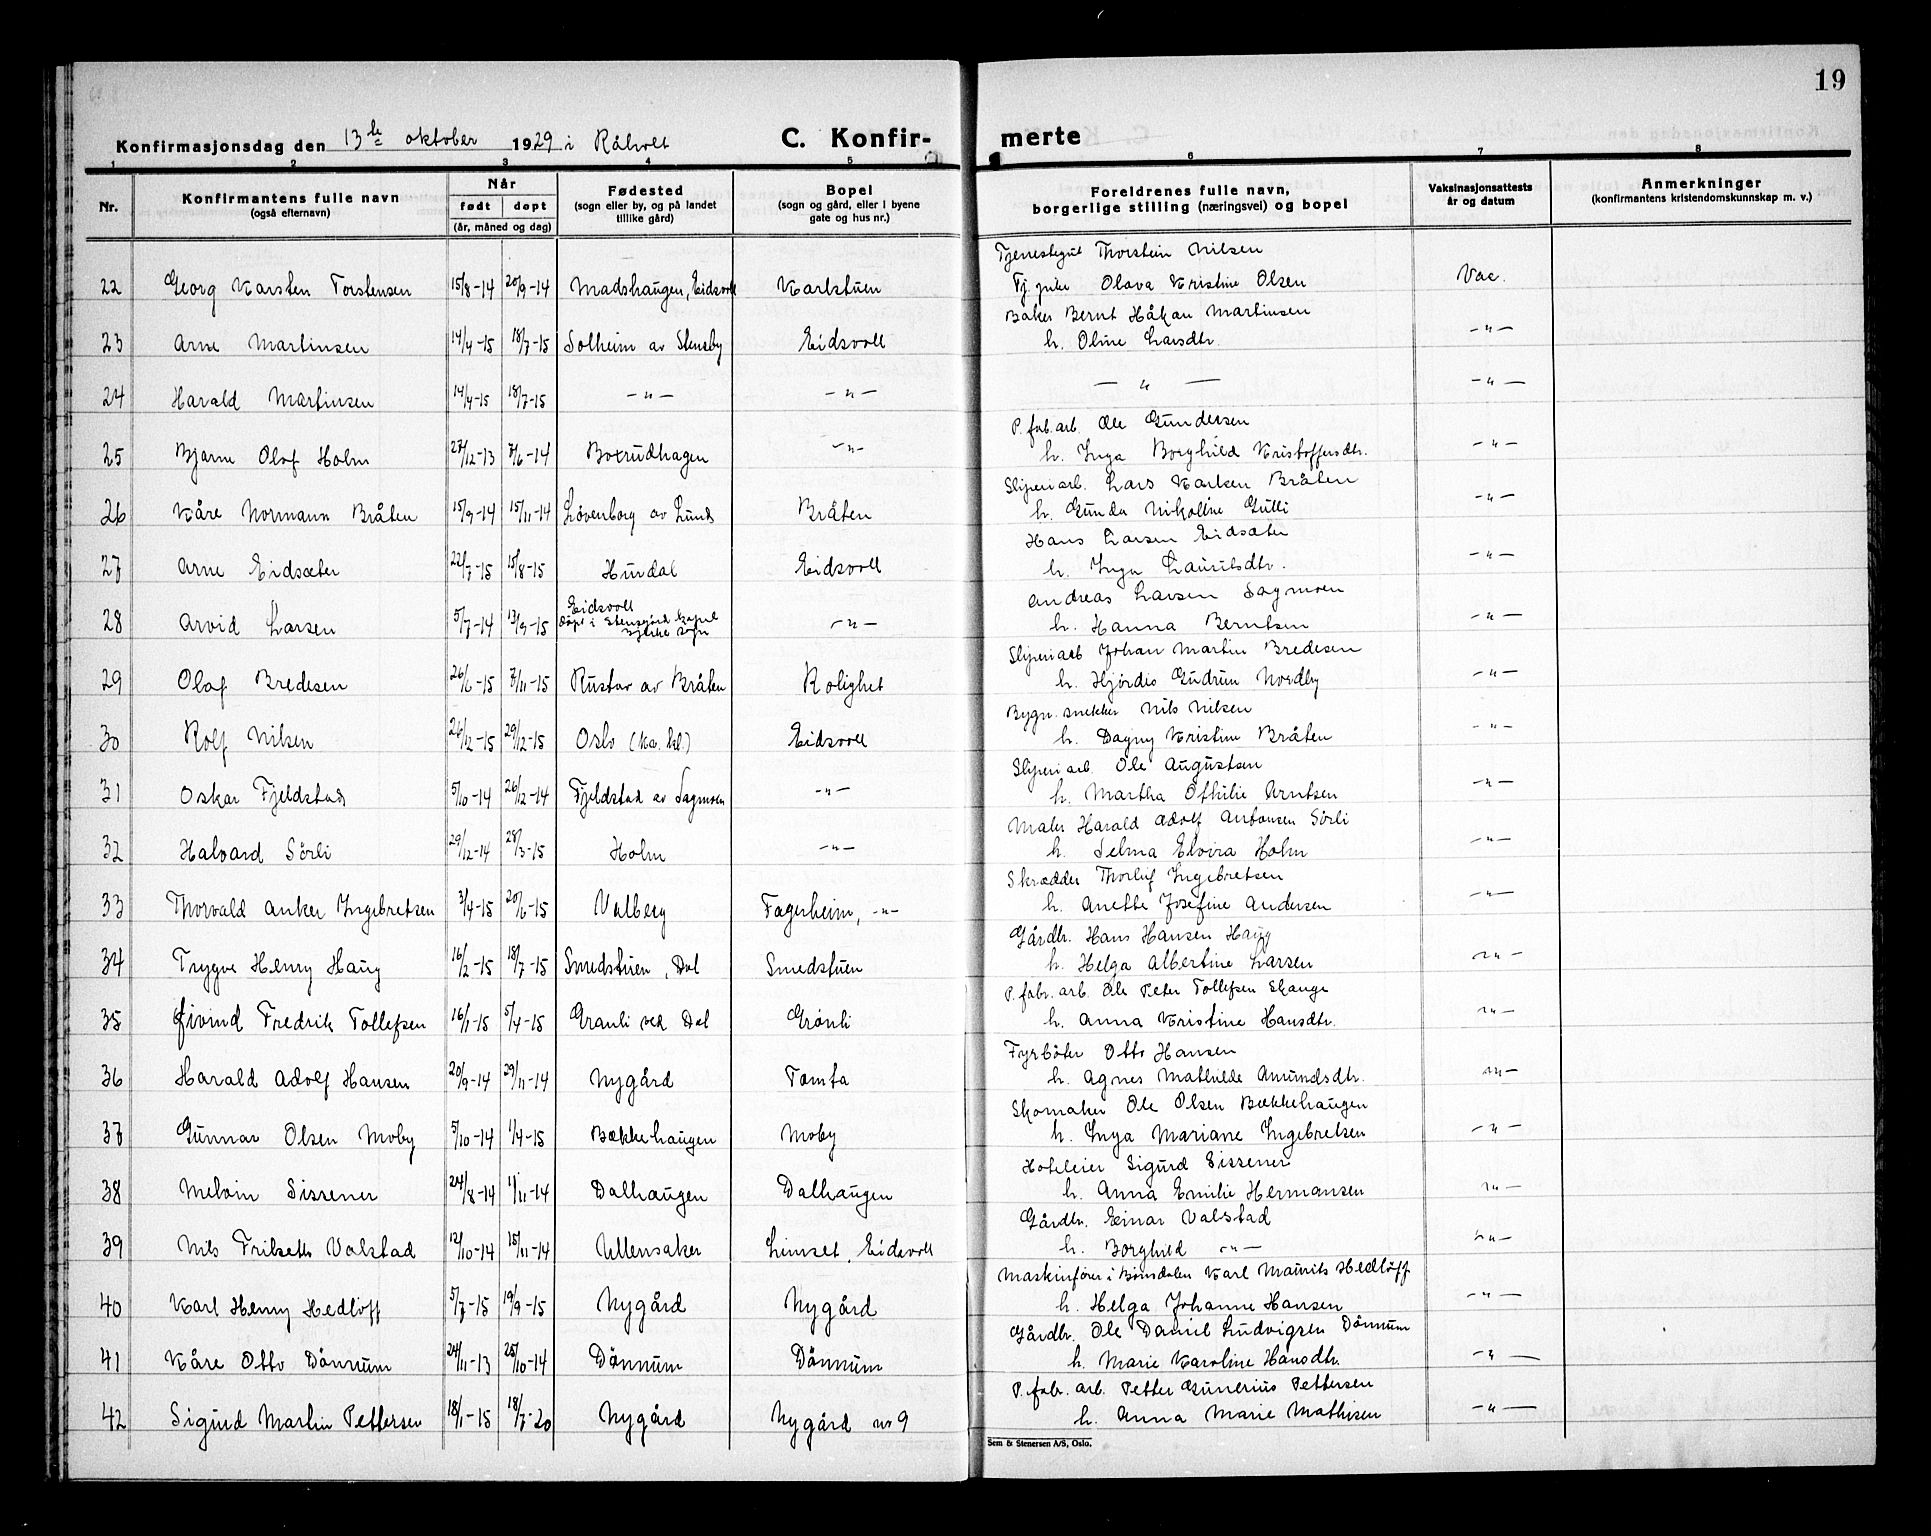 19
Konfirmasjonsdag den 13de oktober 1929 i Råholt C. Konfir- merte
1 2 3 4 5 6 7 8
Nr. Konfirmantens fulle navn (også efternavn) Når født døpt (år, måned og dag) Fødested (sogn eller by, og på landet tillike gård) Bopel (sogn og gård, eller i byene gate og hus nr.) Foreldrenes fulle navn, borgerlige stilling (næringsvei) og bopel Vaksinasjonsattests år og datum Anmerkninger (konfirmantens kristendomskunnskap m. v.)
Tjenestegut Thorstein Nilsen
22 Georg Karsten Torstensen 15/8-14 20/9-14 Madshaugen, Eidsvoll Karlstuen Tj. pike Olava Kristine Olsen Vac.
Baker Bernt Håkan Martinsen
23 Arne Martinsen 14/4-15 18/7-15 Solheim av Stensby Eidsvoll h. Oline Larsdtr. -"-
24 Harald Martinsen 14/4-15 18/7-15 -"- -"- -"- -"-
P. fab. arb. Ole Gundersen
25 Bjarne Olaf Holm 27/12-13 7/6-14 Boxrudhagen -"- h. Inga Borghild Kristoffersdtr. -"-
Sliperiarb. Lars Karlsen Bråten
26 Kåre Normann Bråten 15/9-14 15/11-14 Løvenborg av Lund Bråten h. Gunda Nikoline Gulli -"-
Hans Larsen Eidsæter
27 Arne Eidsæter 22/7-15 15/8-15 Hurdal Eidsvoll h. Inga Lauritsdtr. -"-
Andreas Larsen Sagmoen
28 Arvid Larsen 5/7-14 13/9-15 Eidsvoll døpt i Stensgård kapel sogn -"- h. Hanna Berntsen -"-
Sliperiarb Johan Martin Bredesen
29 Olaf Bredesen 26/6-15 7/11-15 Rustad av Bråten Rolighet h. Hjördis Gudrun Nordby -"-
Bygn. snekker Nils Nilsen
30 Rolf Nilsen 26/12-15 29/12-15 Oslo (Ka. kl.) Eidsvoll h. Dagny Kristine Bråten -"-
Sliperiarb. Ole Augustsen
31 Oskar Fjeldstad 5/10-14 26/12-14 Fjeldstad av Sagmoen -"- h. Martha Othilie Arntsen -"-
Maler Harald Adolf Antonsen Sörli
32 Halvard Sörli 29/12-14 28/3-15 Holm -"- h. Selma Elvira Holm -"-
Skredder Thorleif Ingebretsen
33 Thorvald Anker Ingebretsen 3/4-15 20/6-15 Valberg Fagerheim, -"- h. Anette Josefine Andersen -"-
Gårdbr. Hans Hansen Haug
34 Trygve Henry Haug 16/2-15 18/7-15 Smedstuen, Dal Smedstuen h. Helga Albertine Larsen -"-
P. fabr. arb. Ole Peter Tollefsen Skauge
35 Øivind Fredrik Tollefsen 16/1-15 5/4-15 Granli ved Dal Grönli h. Anna Kristine Hansdtr. -"-
Fyrböter Otto Hansen
36 Harald Adolf Hansen 20/9-14 29/11-14 Nygård Tomta h. Agnes Mathilde Amundsdtr. -"-
Skomaker Ole Olsen Bækkehaugen
37 Gunnar Olsen Moby 5/10-14 1/4-15 Bækkehaugen Moby h. Inga Mariane Ingebretsen -"-
Hoteleier Sigurd Sissener
38 Melvin Sissener 24/8-14 1/11-14 Dalhaugen Dalhaugen h. Anna Emilie Hermansen -"-
Gårdbr. Einar Valstad
39 Nils Frilseth Valstad 12/10-14 15/11-14 Ullensaker Linset, Eidsvoll h. Borghild -"- -"-
Maskinfører i Bønsdalen Karl Maurits Hedlöff
40 Karl Henry Hedlöff 5/7-15 19/9-15 Nygård Nygård h. Helga Johanne Hansen -"-
Gårdbr. Ole Daniel Ludvigsen Dönnum
41 Kåre Otto Dönnum 24/11-13 25/10-14 Dönnum Dönnum h. Marie Karoline Hansdtr. -"-
P. fabr. arb. Petter Gunerius Pettersen
42 Sigurd Martin Pettersen 18/1-15 18/7-20 Nygård Nygård nr 9 h. Anna Marie Mathisen -"-
Sem & Stenersen A/S, Oslo.